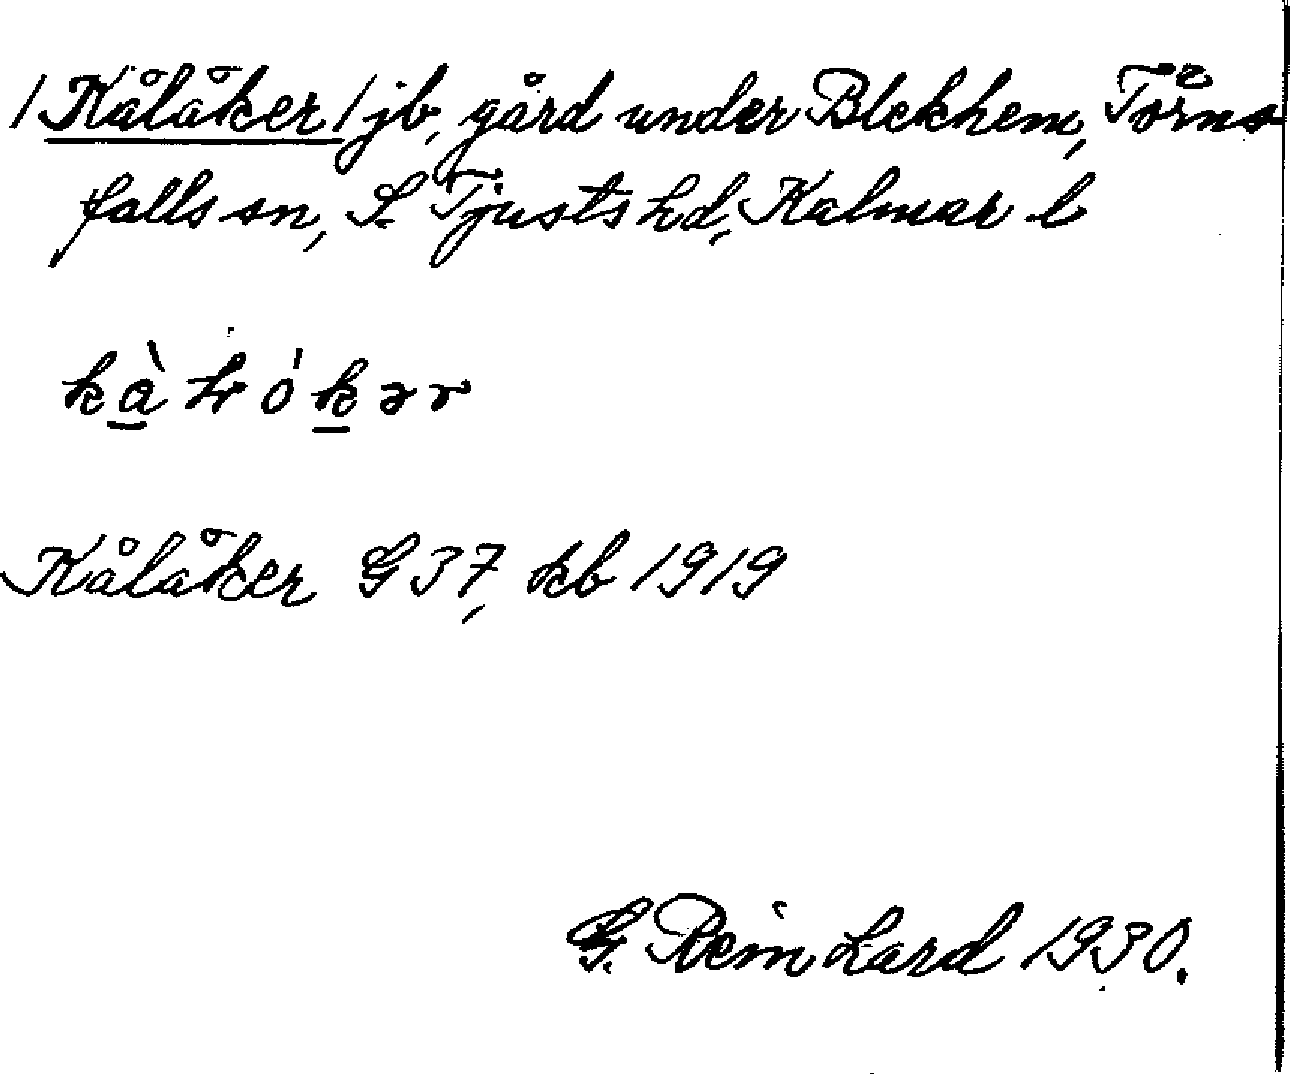 /Kålåker/ jb, gård under Blekhem, Törns
falls sn, S. Tjusts hd, Kalmar l
Kålåker G 37, kb 1919
G. Reinhard 1930.